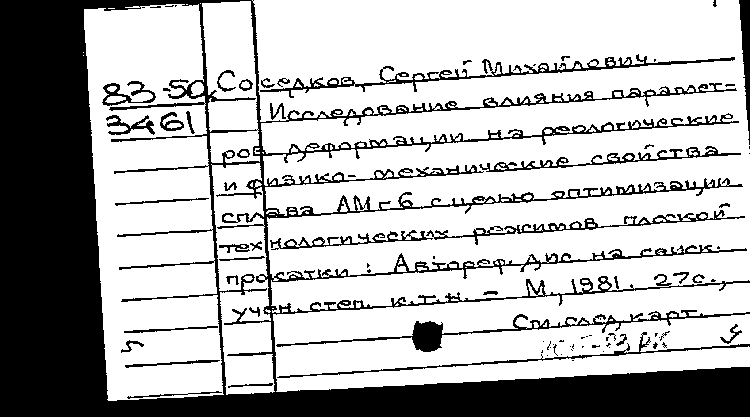 83-50
3461
Соседков, Сергей Михайлович.
Исследование влияния парамет=
ров деформации на реологические
и физико-механические свойства
сплава АМг6 с целью оптимизации
технологических режимов плоской
прокатки: Автореф. дис. на соиск.
учен. степ. к.т.н. – М., 1981. 27с.,
См. след. карт.